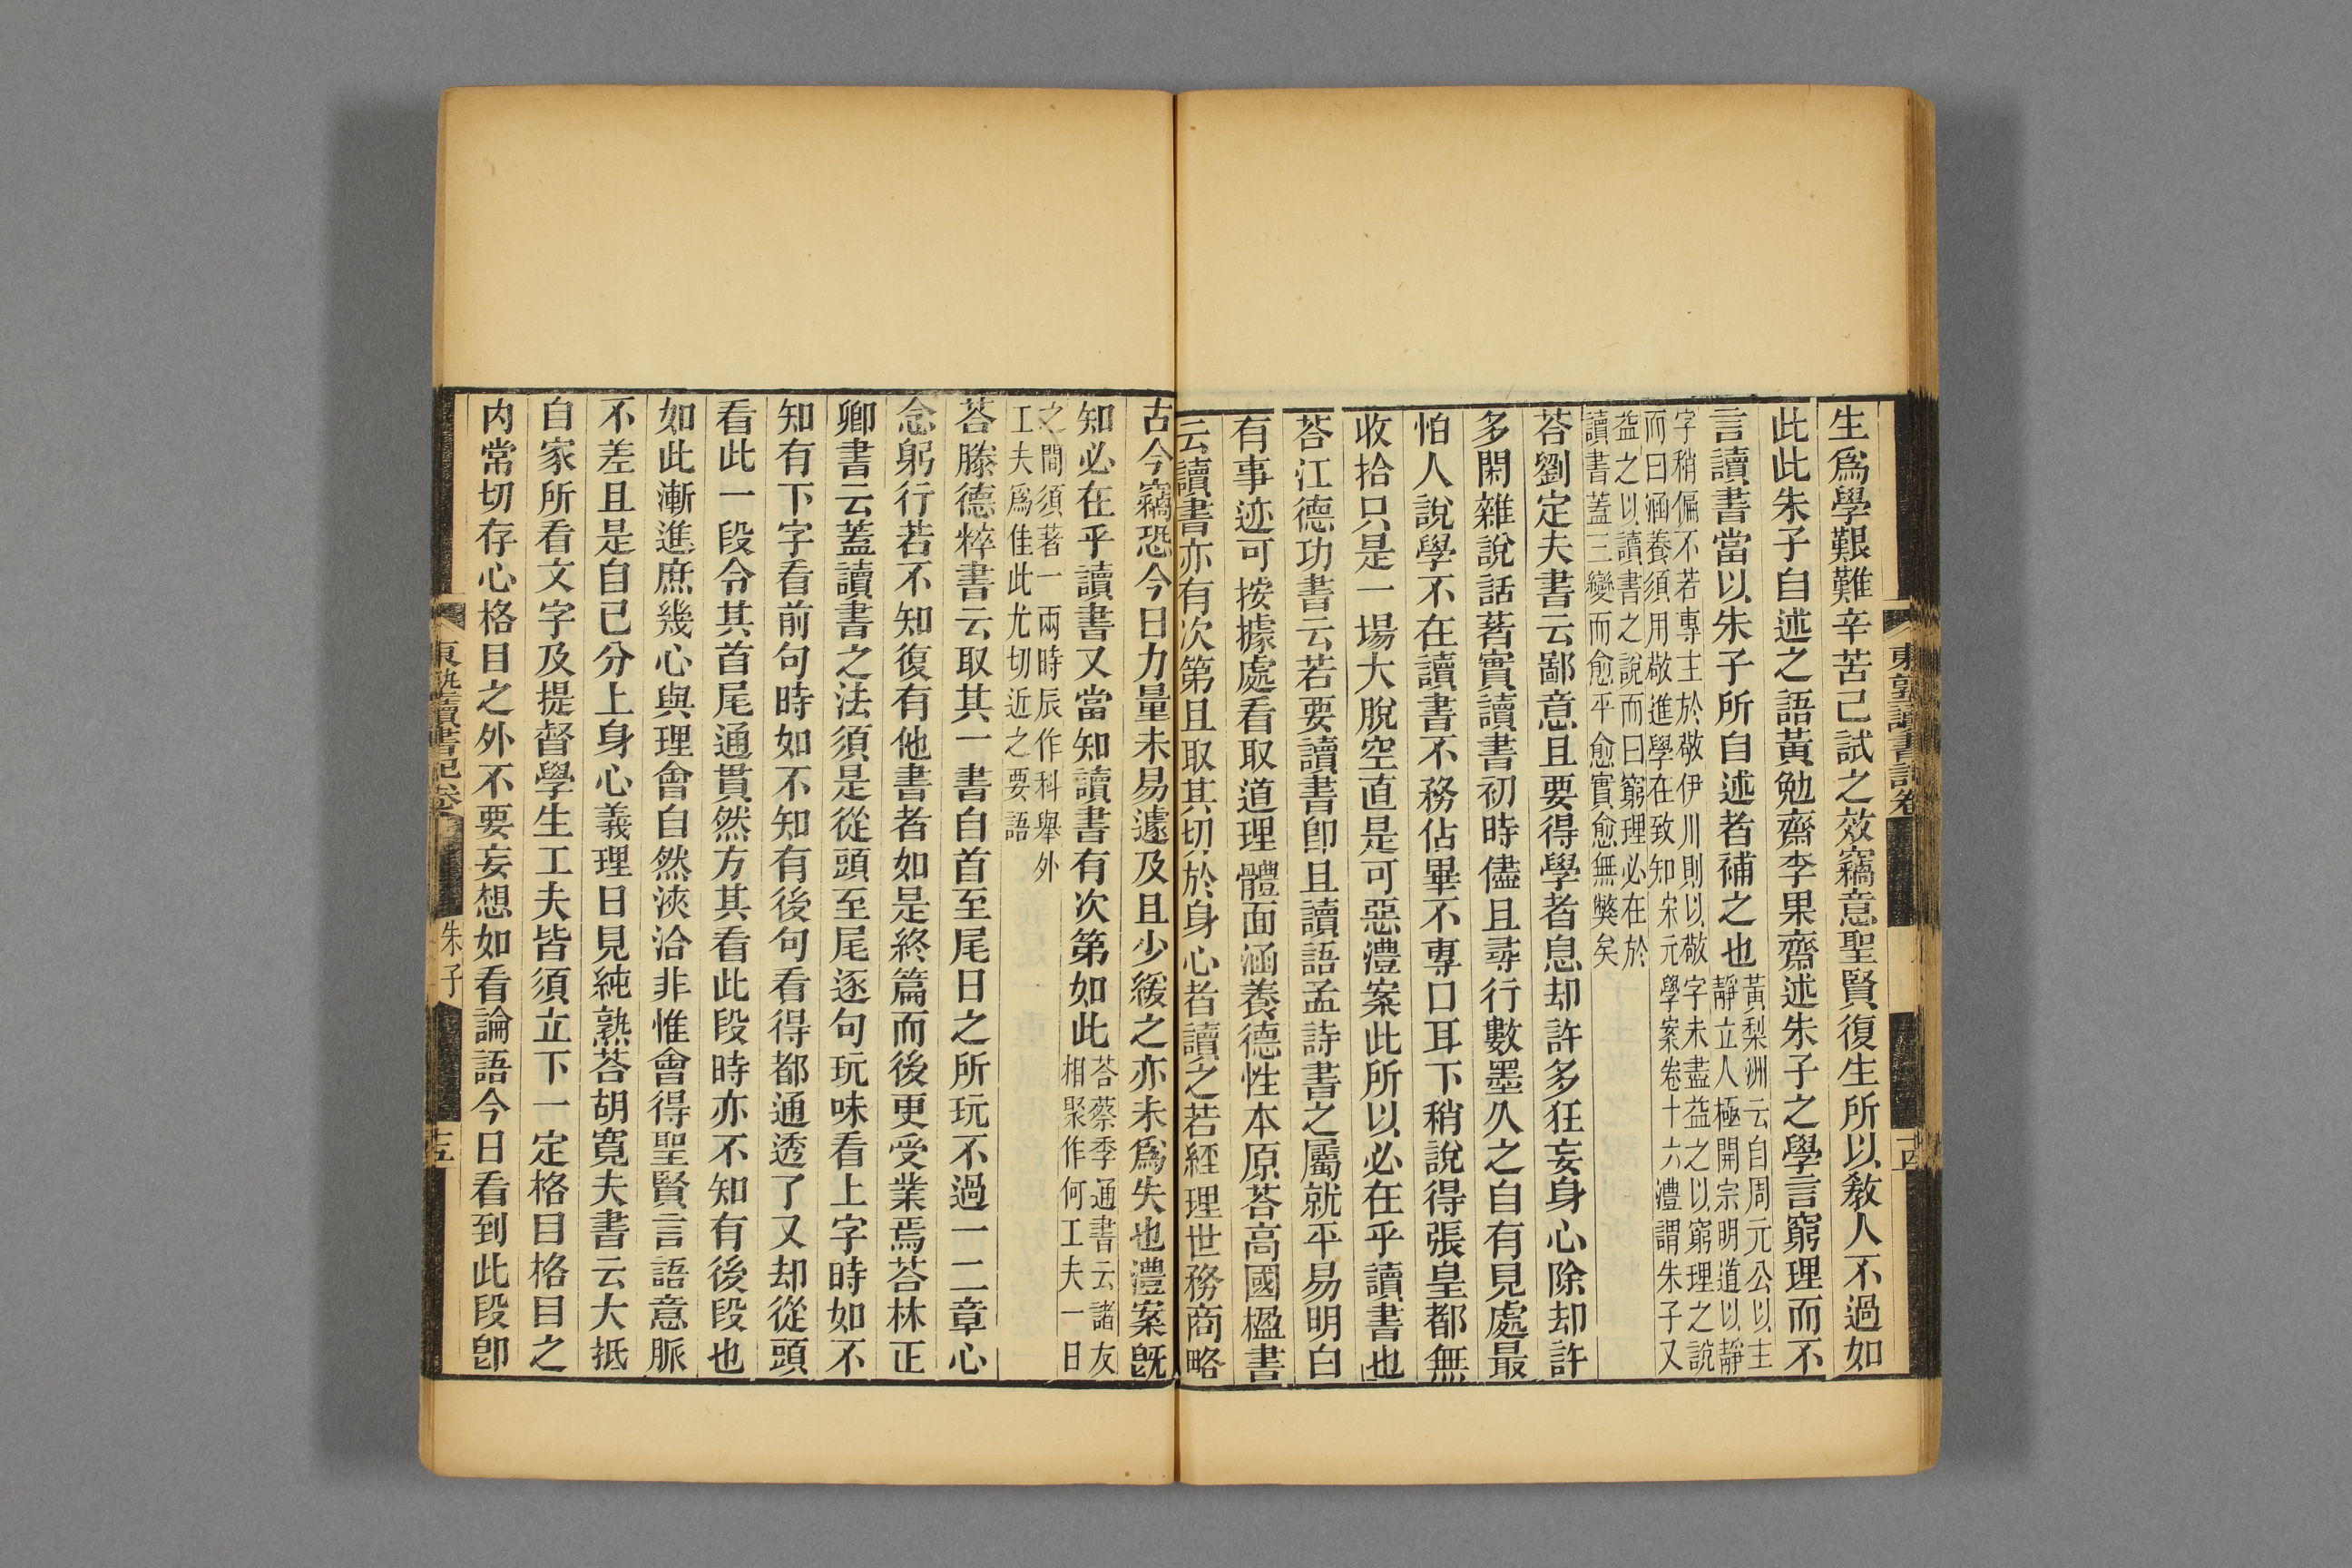 生爲學艱難辛苦己試之效竊意聖賢復生所以敎人不過如
此此朱子自述之語黃勉齋李果齋述朱子之學言窮理而不
言讀書當以朱子所自述者補之也
黃梨洲云自周元公以主
靜立人極開宗明道以靜
字稍偏不若專主於敬伊川則以敬字未盡益之以窮理之說
而曰涵養須用敬進學在致知宋元學案卷十六澧謂朱子又
益之以讀書之說而曰窮理必在於
讀書蓋三變而愈平愈實愈無弊矣
荅劉定夫書云鄙意且要得學者息却許多狂妄身心除却許
多閑雜說話著實讀書初時儘且尋行數墨久之自有見處最
怕人說學不在讀書不務佔畢不專口耳下稍說得張皇都無
收拾只是一場大脫空直是可惡澧案此所以必在乎讀書也
荅江德功書云若要讀書卽且讀語孟詩書之屬就平易明白
有事迹可按據處看取道理體面涵養德性本原荅高國楹書
云讀書亦有次第且取其切於身心者讀之若經理世務商略
古今竊恐今日力量未易遽及且少緩之亦未爲失也澧案旣
知必在乎讀書又當知讀書有次第如此
荅蔡季通書云諸友
相聚作何工夫一日
之間須著一兩時辰作科舉外
工夫爲佳此尤切近之要語
荅滕德粹書云取其一書自首至尾日之所玩不過一二章心
念躬行若不知復有他書者如是終篇而後更受業焉荅林正
卿書云蓋讀書之法須是從頭至尾逐句玩味看上字時如不
知有下字看前句時如不知有後句看得都通透了又却從頭
看此一段令其首尾通貫然方其看此段時亦不知有後段也
如此漸進庶幾心與理會自然浹洽非惟會得聖賢言語意脈
不差且是自己分上身心義理日見純熟荅胡寬夫書云大抵
自家所看文字及提督學生工夫皆須立下一定格目格目之
內常切存心格目之外不要妄想如看論語今日看到此段卽
東塾讀書記卷
朱子
十五
東塾讀書記卷
十四